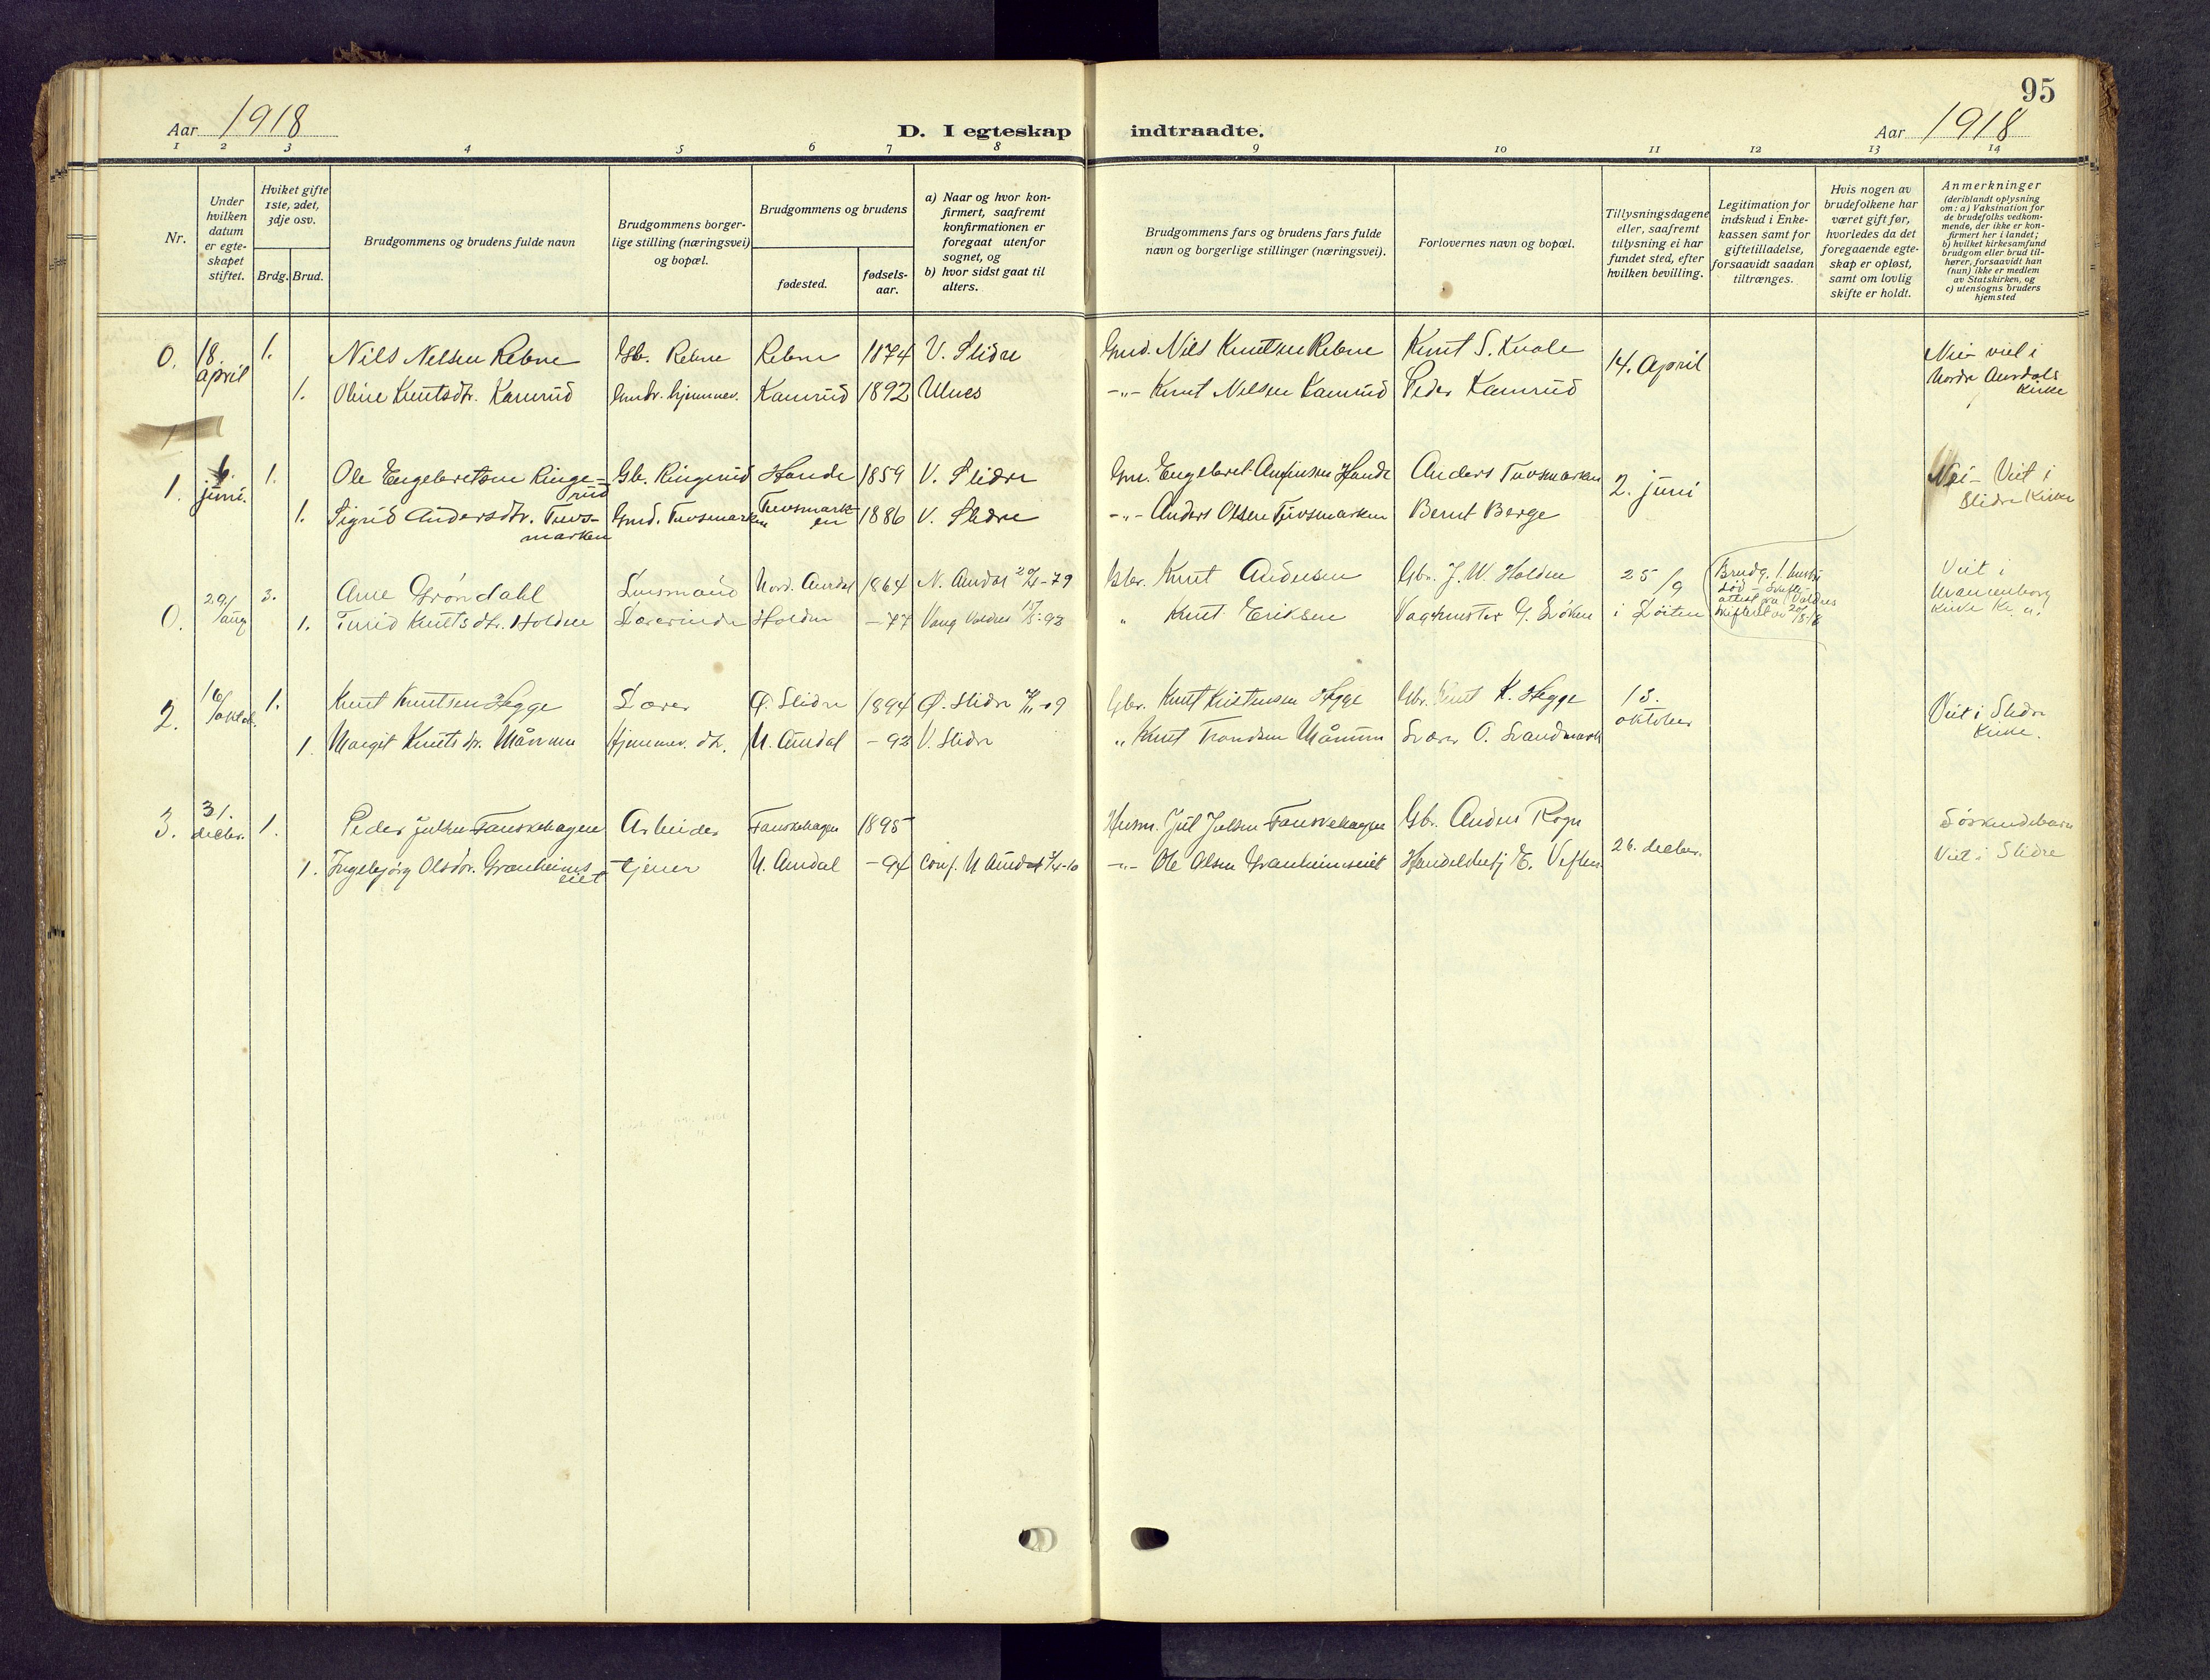 95
Aar 1918
D. I egteskap indtraadte.
Aar 1918
1 2 3 4 5 6 7 8 9 10 11 12 13 14
Nr.
Under hvilken datum er egteskapet stiftet.
Hviket gifte 1ste, 2det, 3dje osv.
Brdg. Brud.
Brudgommens og brudens fulde navn
Brudgommens borgerlige stilling (næringsvei) og bopæl.
Brudgommens og brudens
fødested.
fødselsaar.
a) Naar og hvor konfirmert, saafremt konfirmationen er foregaat utenfor sognet, og
b) hvor sidst gaat til alters.
Brudgommens fars og brudens fars fulde navn og borgerlige stillinger (næringsvei).
Forlovernes navn og bopæl.
Tillysningsdagene eller, saafremt tillysning ei har fundet sted, efter hvilken bevilling.
Legitimation for indskud i Enkekassen samt for giftetilladelse, forsaavidt saadan tiltrænges.
Hvis nogen av brudefolkene har været gift før, hvorledes da det foregaaende egteskap er opløst, samt om lovlig skifte er holdt.
Anmerkninger (deriblandt oplysning om: a) Vaksination for de brudefolks vedkommende, der ikke er konfirmert her i landet; b) hvilket kirkesamfund brudgom eller brud tilhører, forsaavidt han (hun) ikke er medlem av Statskirken, og c) utensogns bruders hjemsted
0. 18. april 1. Nils Nelsen Rebne Gb. Rebne Rebne 1874 V. Slidre Gmd. Nils Knutsen Rebne Knut S. Kvale 14. April Nei - viet i Nordre Aurdals Kirke
1. Oline Knutsdtr. Kamrud Gmdr. hjemmev. Kamrud 1892 Ulnes -„- Knut Nilsen Kamrud Peder Kamrud
1. 6. juni. 1. Ole Engebretsen Ringerud Gb. Ringerud Hande 1859 V. Slidre Gm. Engebret Anfinsen Hande Anders Tuvsmarken 2. juni Nei - Viet i Slidre Kirke
1. Sigrid Andersdtr. Tuvsmarken Gmd. Tuvsmarken Tuvsmarken 1886 V. Slidre -„- Anders Olsen Tuvsmarken Bernt Berge
0. 29/ aug 3. Arne Grøndahl Lensmand Nord. Aurdal 1864 N. Aurdal -79 Gbr. Knut Andersen Gbr. J. W. Holden 25/9 Brudg. 1. hustru død - Viet i kirke
1. Turid Knutsdtr. Holden Lærerinde Holden -77 Vang Valdres -92 „ Knut Eriksen Vagtmester G. Løken i Løiten
2. 16/ oktob. 1. Knut Knutsen Hegge Lærer Ø. Slidre 1894 Ø. Slidre -09 Gbr. Knut Kristensen Hegge Gbr. Knut K. Hegge 13. oktober Viet i Slidre Kirke.
1. Margit Knutsdtr. Månum Hjemmev. dtr. N. Aurdal -92 V. Slidre „ Knut Trondsen Månum Lærer O. Strandmark
3. 31. decbr. 1. Peder Julsen Fauskehagen Arbeider Fauskehagen 1895 Husm. Jul Julsen Fauskehagen Gbr. Anders Rogn 26. decbr. Søskendebarn Viet i Slidre
1. Ingebjørg Olsdtr. Granheimseiet tjener N. Aurdal -94 conf. N. Aurdal -10 -„- Ole Olsen Granheimseiet